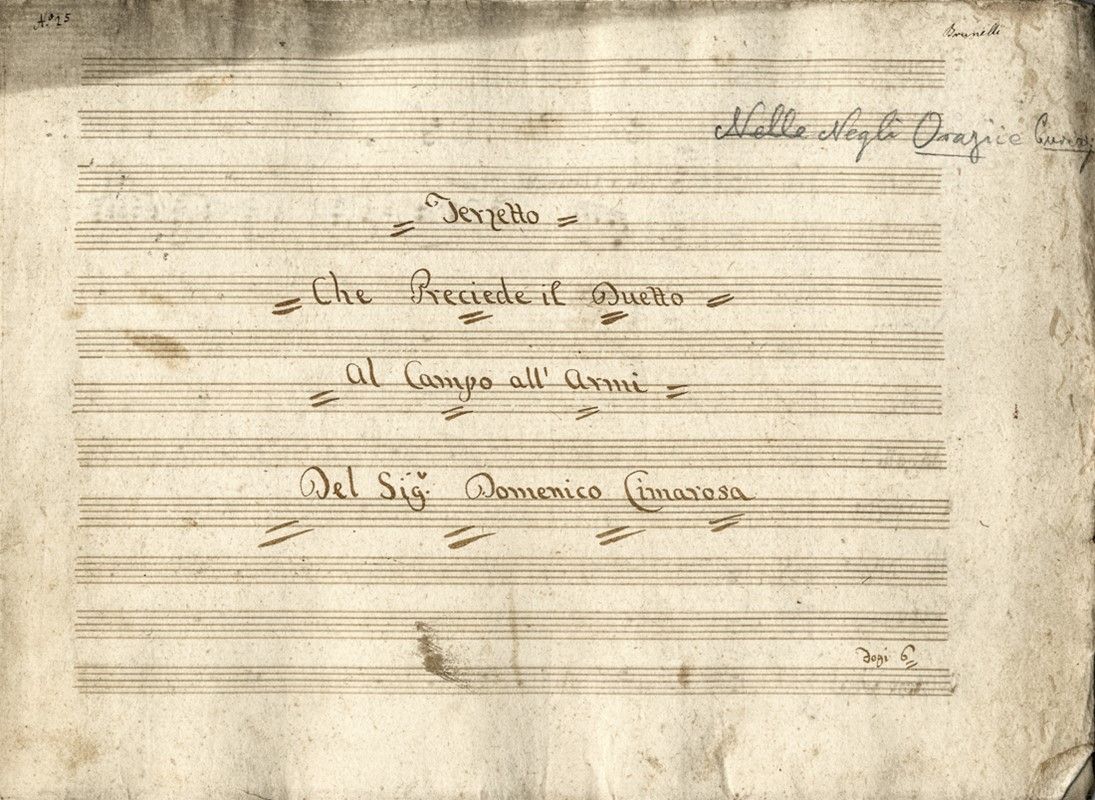 Brunelli
Nelle Negli Orazi e
= Terzetto =
= Che Preciede il Duetto =
Al Campo all' Armi =
Del Sig.r Domenico Cimarosa
Fogi 6